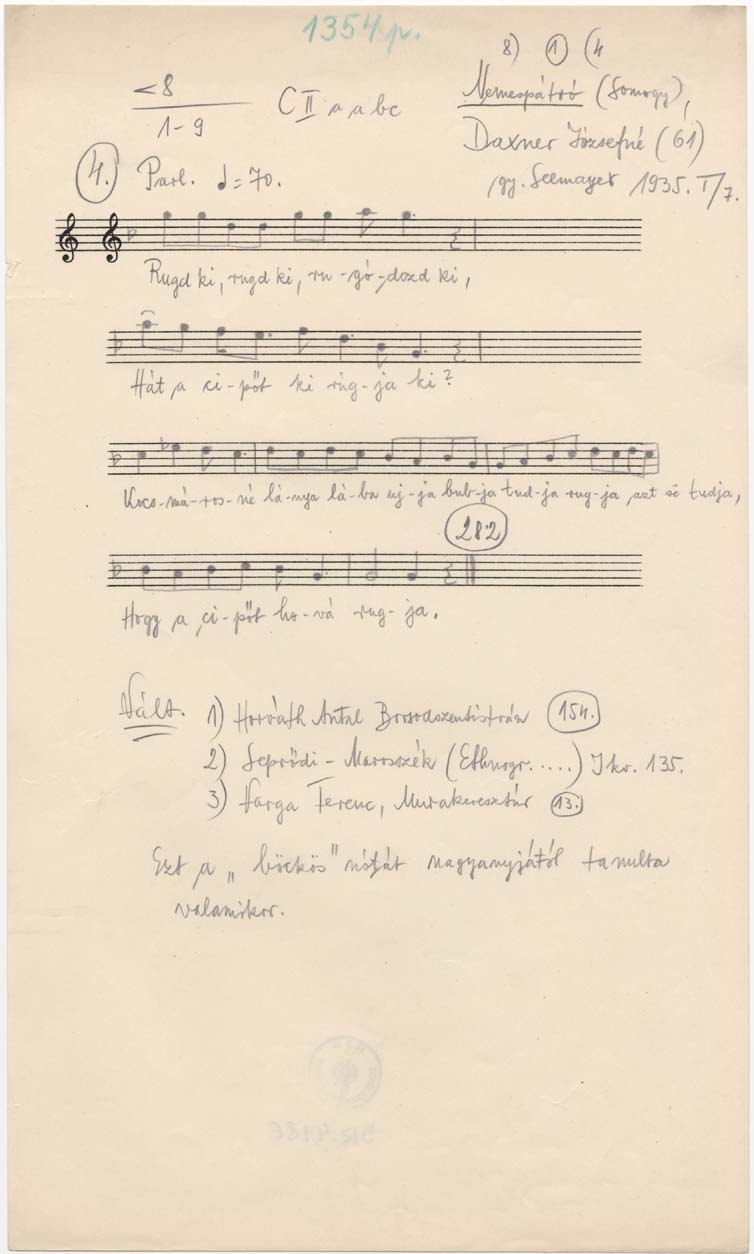 1354 p.
8) 1 (4
<8
1-9
C II a a b c
Nemespátró (Somogy),
Daxner Józsefné (61)
gy. Seemayer 1935. I/7.
4. Parl. = 70.
Rugd ki, rugd ki, ru-gó-dozd ki,
Hát a ci-pőt ki rúg-ja ki?
Kocs-má-ros-né lá-nya lá-ba uj-ja bub-ja tud-ja rug-ja azt së tudja,
282
Hogy a ci-pőt ho-vá rug-ja.
Vált. 1) Horváth Antal Borsodszentistván 154.
2) Seprődi - Marosszék (Ethnogr.....) Ikv. 135.
3) Varga Ferenc, Murakeresztúr 13.
Ezt a „böckös" nótát nagyanyjától tanulta
valamikor.